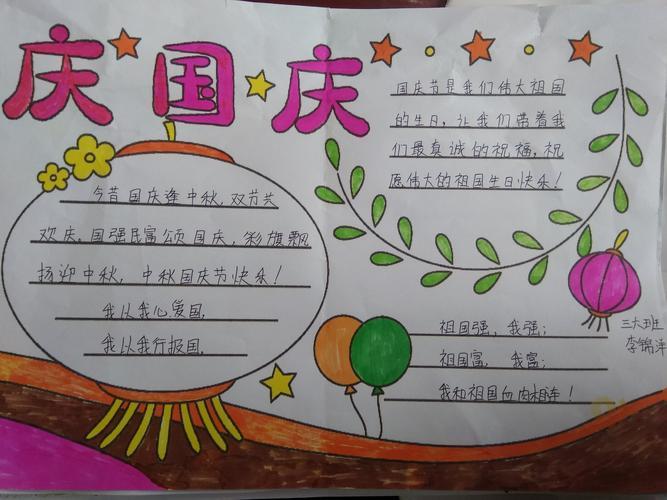 庆国庆
国庆节是我们伟大祖国
的生日,让我们带着我
们最真诚的祝福,祝
愿伟大的祖国生日快乐!
今昔国庆逢中秋,双节共
欢庆。国强民富颂国庆,彩旗飘
扬迎中秋,中秋国庆节快乐!
我以我心爱国,
我以我行报国。
祖国强,我强;
祖国富,我富;
我和祖国血肉相连!
三大班
李锦洋